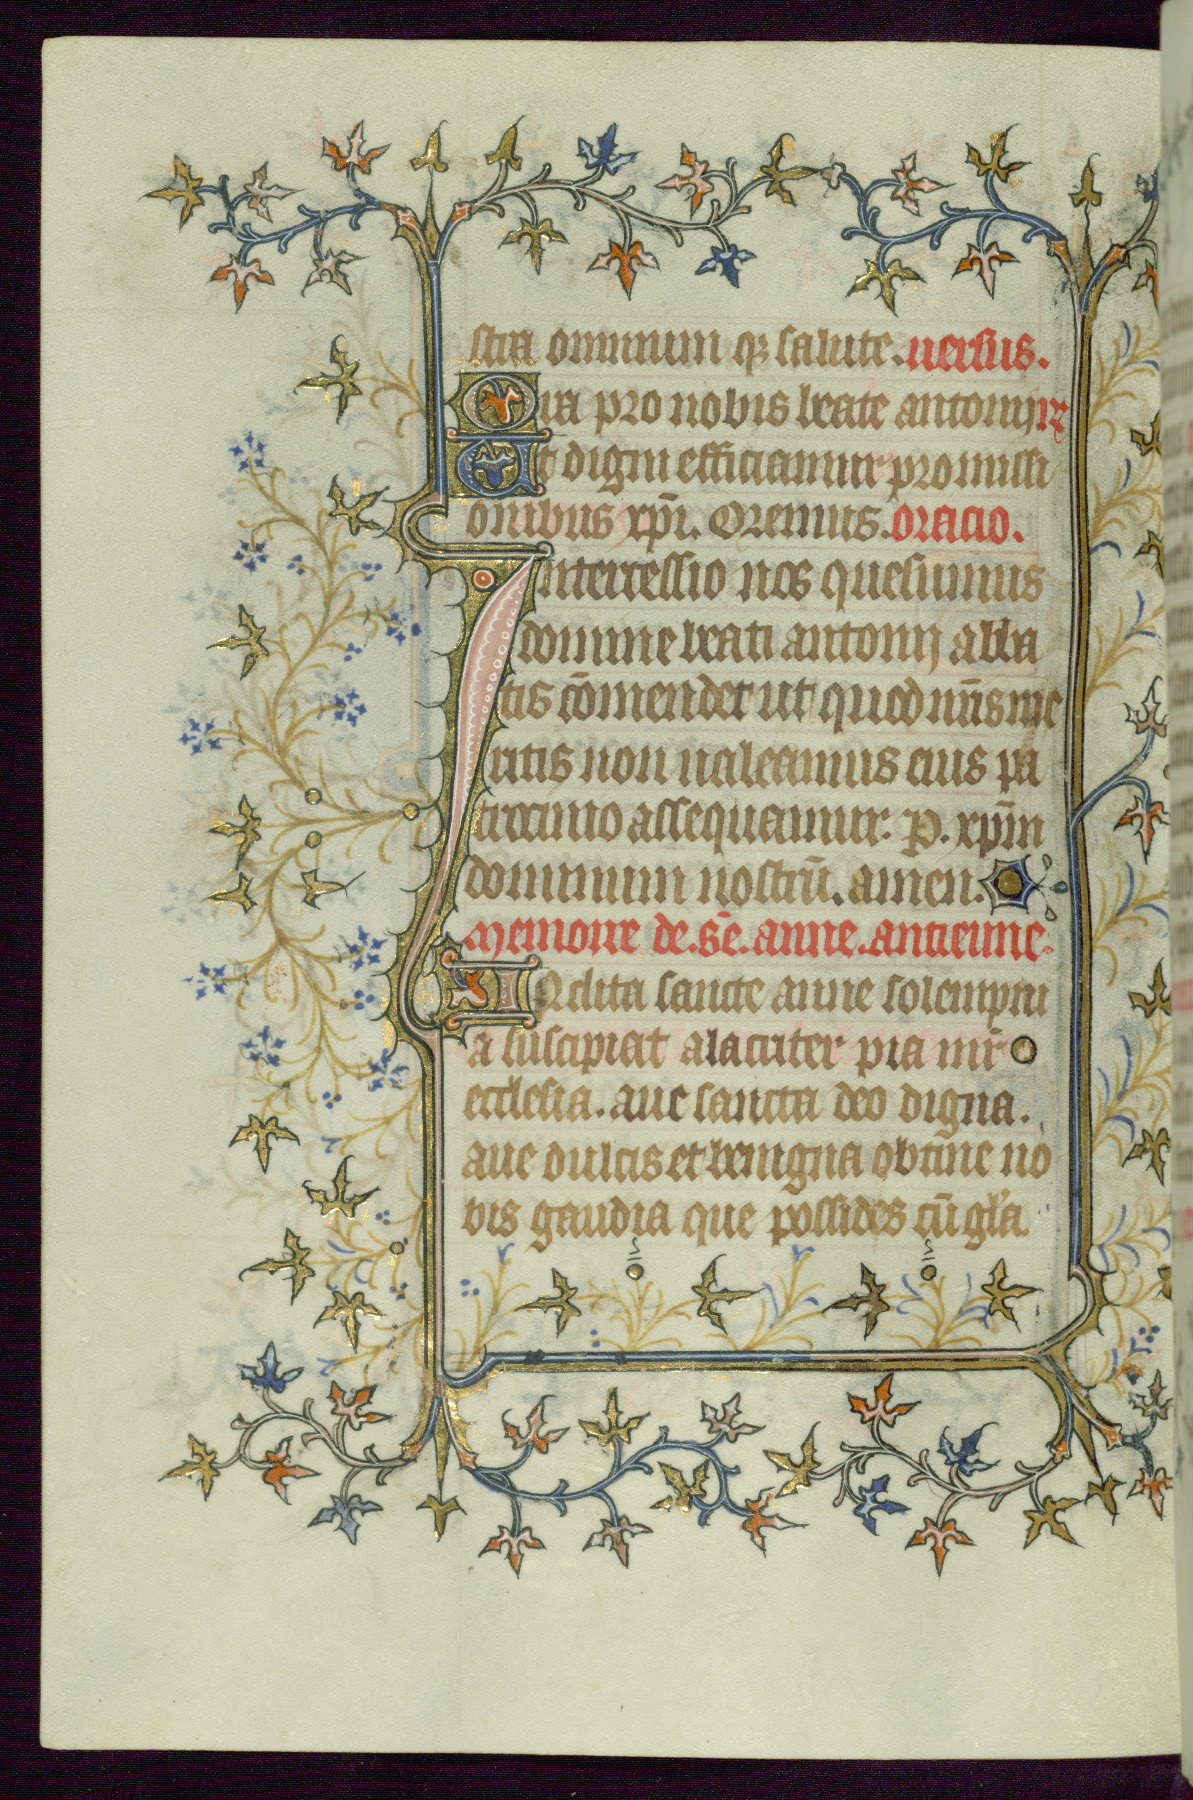 stra omnium q; salute. uersus.
Ora pro nobis beate antonij rx
Et digni efficiamur promissi
onibus xp̄i. Oremus. oracio.
Intercessio nos quesumus
domine beati antonij abba
tis cōmendet ut quod nr̄is me
ritis non ualeamus eius pa
trocinio assequamur. P. xp̄m
dominum nostrū. amen.
Memoire de. sē. anne. antieune.
INclita sancte anne solempni
a suscipiat alacriter pia mr̄
ecclesia. aue sancta deo digna.
aue dulcis et benigna obtine no
bis gaudia que possides cū gl'a